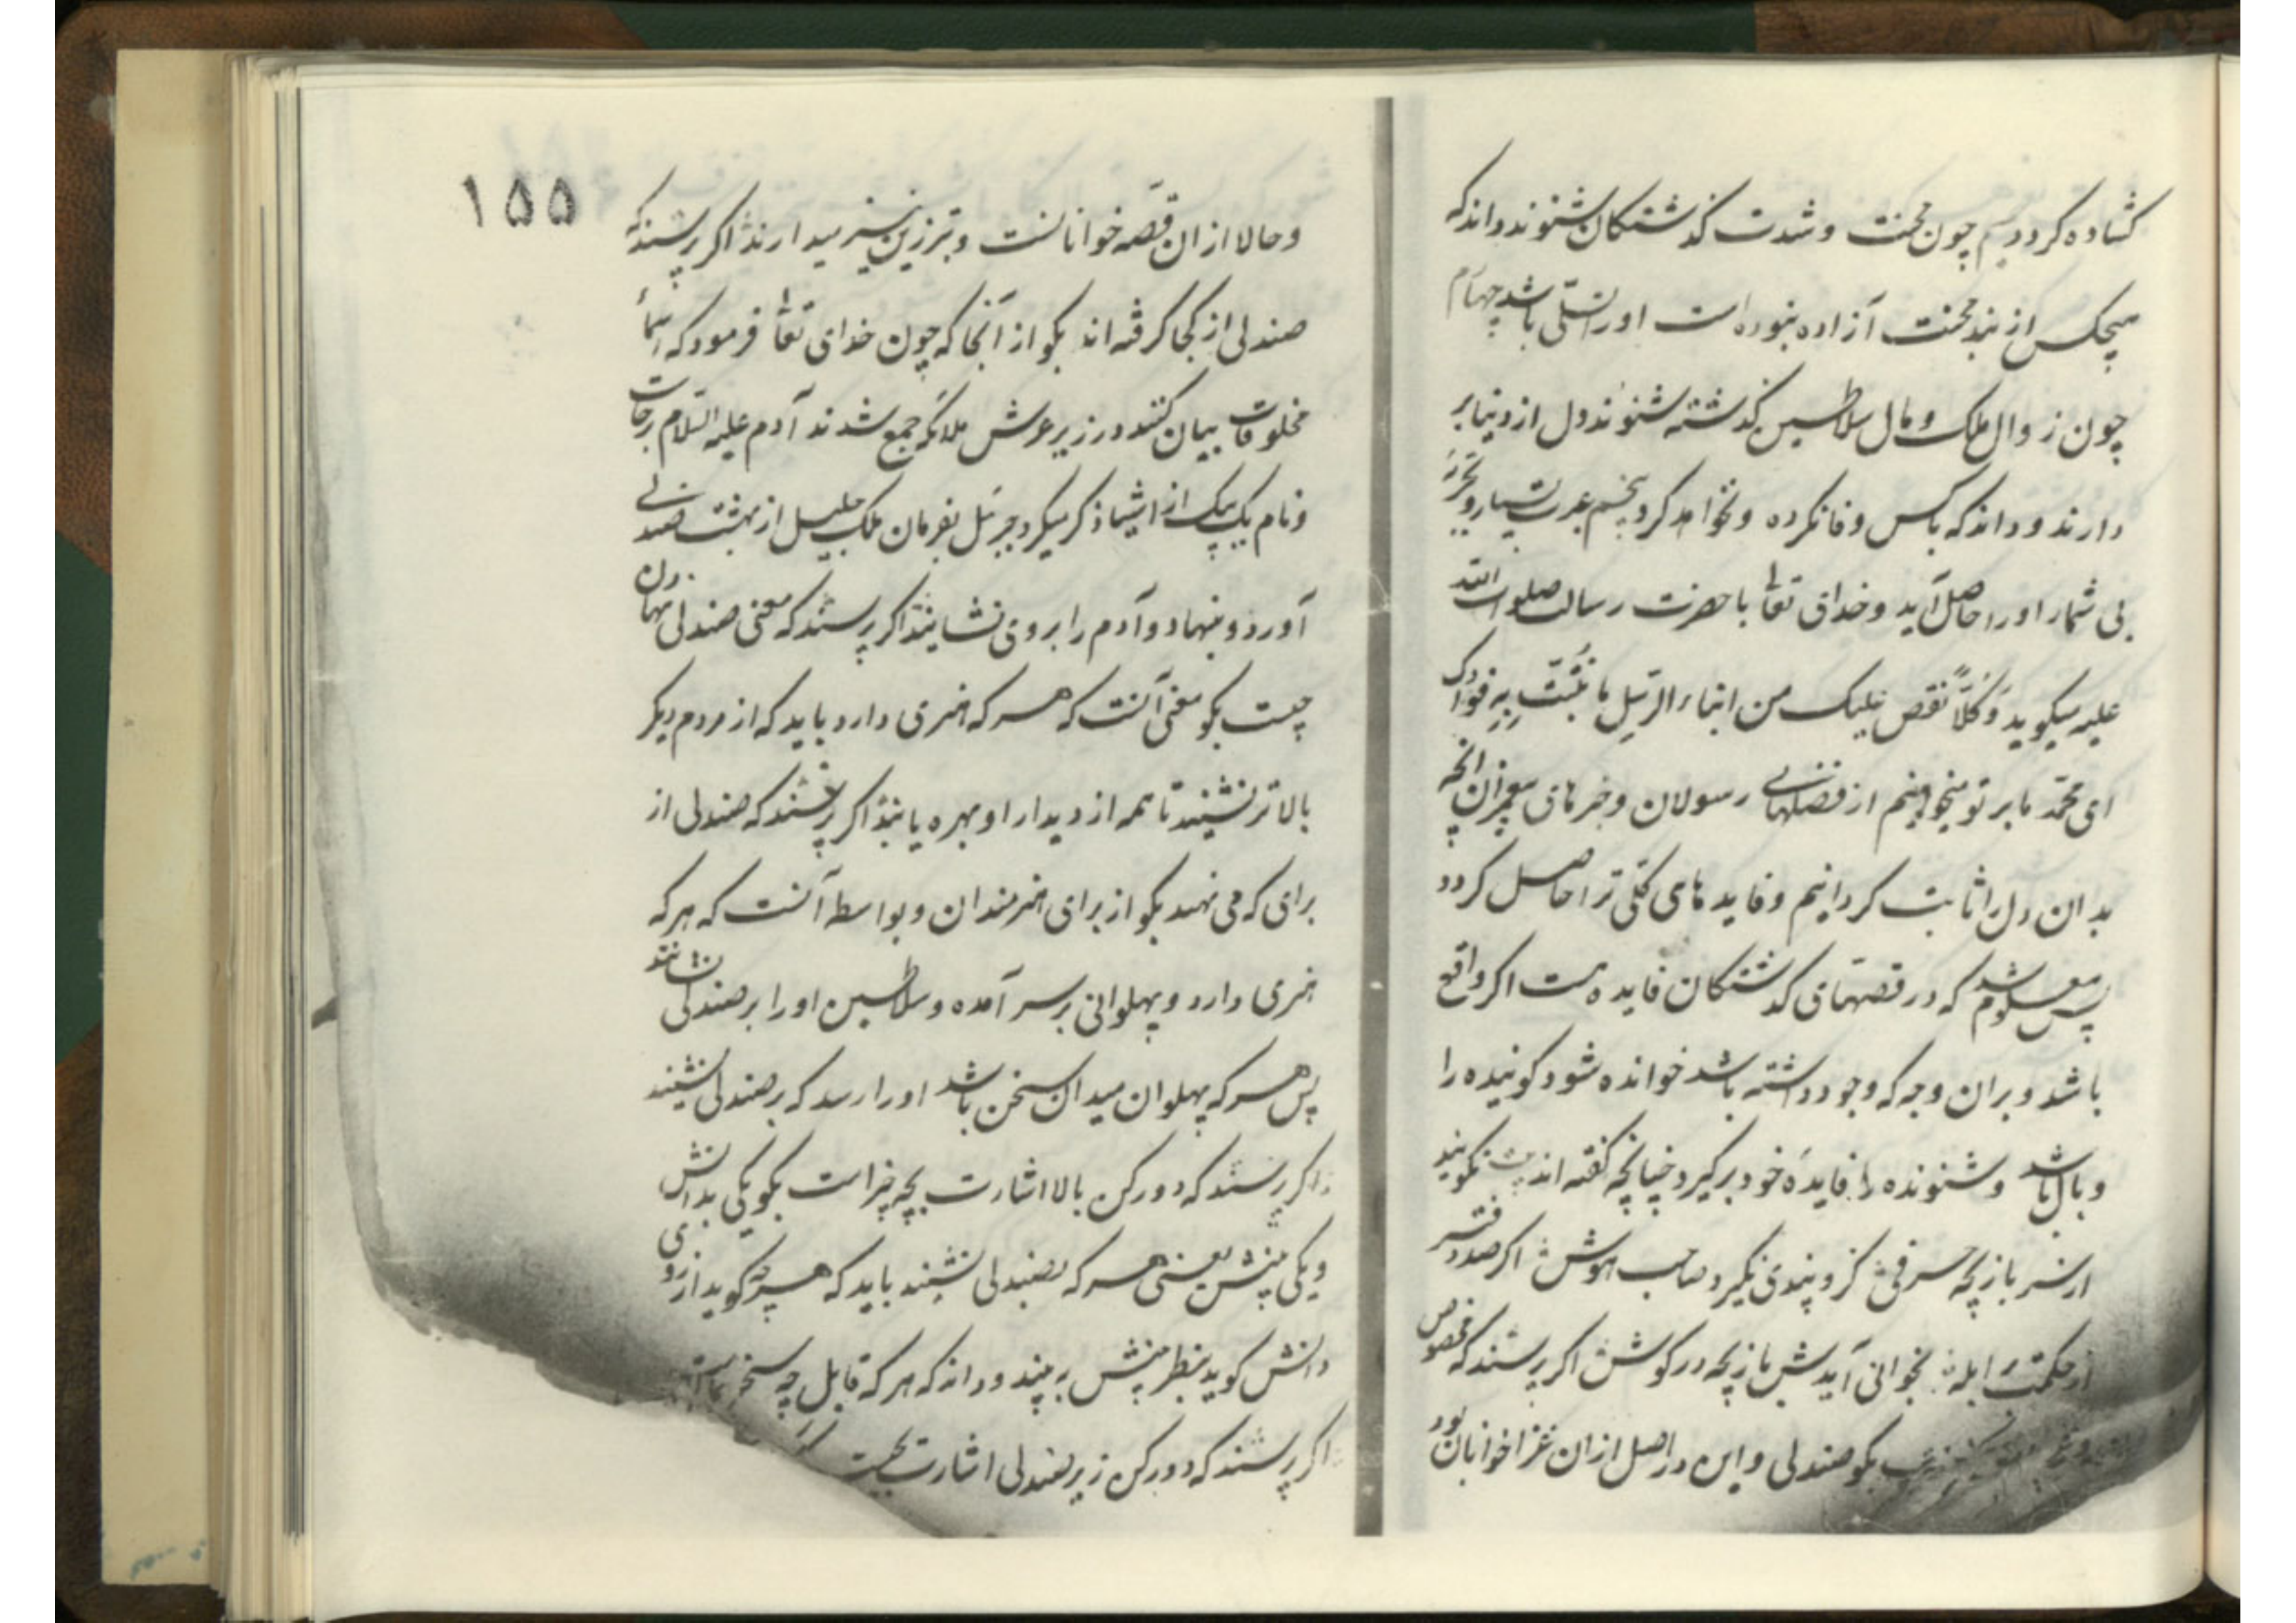 کشاده کردد سیم چون محنت و شدت کذشتکان شنوند داند که
هیچکس از بند محنت آزاده نبوده است او را تسلّی باشد چهارم
چون زوال ملک و مال سلاطین کذشته شنوند دل از دنیا بر
دارند و داند که با کس وفا نکرده و نخواهد کرد پنجم عبرت بسیار و تجربه
بی شمار او را حاصل آید و خدای تعالی با حضرت رسالت صلوات الله
علیه میکوید وَکُلّاً نقص علیک من انباء الرسل ما نُثبّت به فوادک
ای محمّد ما بر تو میخوانیم از قصّهای رسولان و خبرهای پیغمبران آنچه
بدان دل را ثابت کردانیم و فایدهای کلّی ترا حاصل کردد
پس معلوم شد که در قصّهای کذشتکان فایده هست اکر واقع
باشد و بران وجه که وجود داشته باشد خوانده شود کوینده را
وبال باشد و شنونده را فایدهٔ خود برکیرد چنانچه کفته اند نکویند
از سر بازیچه حرفی کزو پندی نکیرد صاحب هوش اکر صد دفتر
از حکمت بر ابله بخوانی آیدش بازیچه در کوش اکر پرسند که مخصوص
بکو صندلی و این در اصل از ان غزا خوانان بود
۱۵۵
و حالا از ان قصّه خوانانست و تبرزین نیز میدارند اکر پرسند که
صندلی از کجا کرفته اند بکو از آنجا که چون خدای تعالی فرمود که اسماء
مخلوقات بیان کنند در زیر عرش ملائکه جمع شدند آدم علیه السّلام برخاست
و نام یک یک از اشیا ذکر میکرد جبرئیل بفرمان ملک جلیل از بهشت صندلی
آورد و بنهاد و آدم را بروی نشانید اکر پرسند که معنی صندلی نهادن
چیست بکو معنی آنست که هر که هنری دارد باید که از مردم دیکر
بالاتر نشیند تا همه از دیدار او بهره یابند اکر پرسند که صندلی از
برای که می نهند بکو از برای هنرمندان و بواسطه آنست که هر که
هنری دارد و پهلوانی بر سر آمده و سلاطین او را بر صندلی نشانند
پس هر که پهلوان میدان سخن باشد او را رسد که بر صندلی نشیند
اکر پرسند که دو رکن بالا اشارت بچه چیز است بکو یکی بدانش
و یکی بینش یعنی هر که بصندلی نشیند باید که هر چه کوید از روی
دانش کوید بنظر بینش به بیند و داند که هر که قابل چه سخن
اکر پرسند که دو رکن زیر صندلی اشارت بچیست